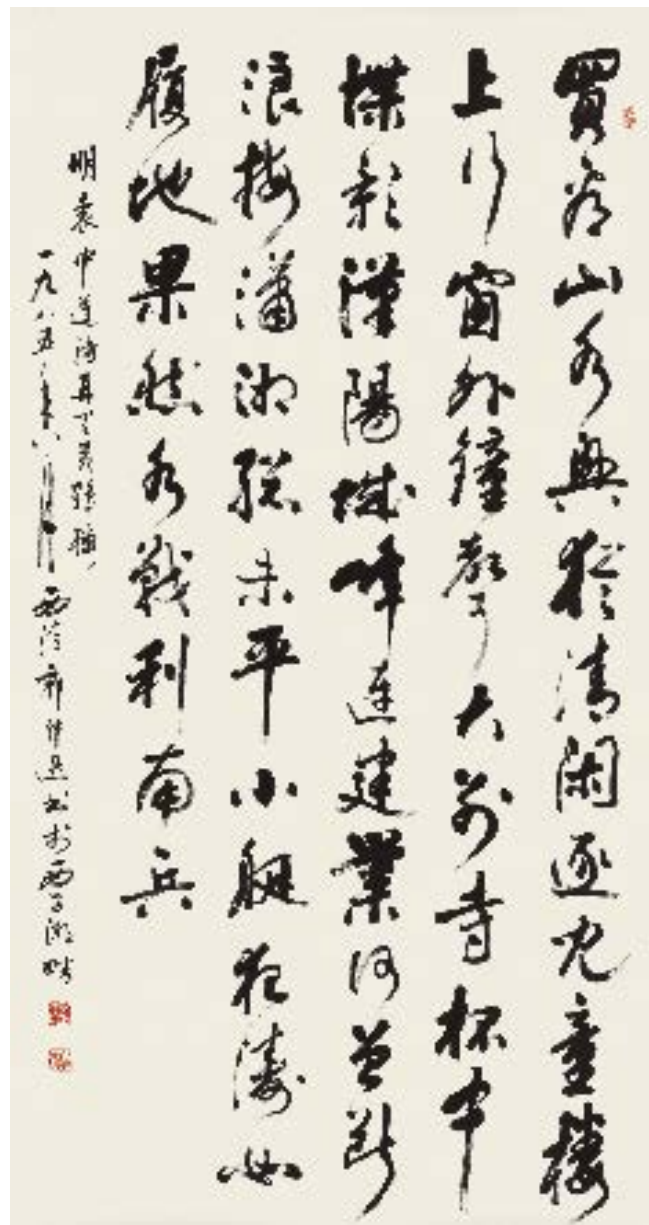 買山水興猶清閑逐兒童樓
上行窗外鐘聲大別寺杯中
堞影漢陽城峰連建業何曾斷
浪接瀟湘總未平小艇狂濤如
履地果然水戰利南兵
明袁中道詩再登黃鶴樓
一九八五年六月西泠郭仲選書於西子湖畔